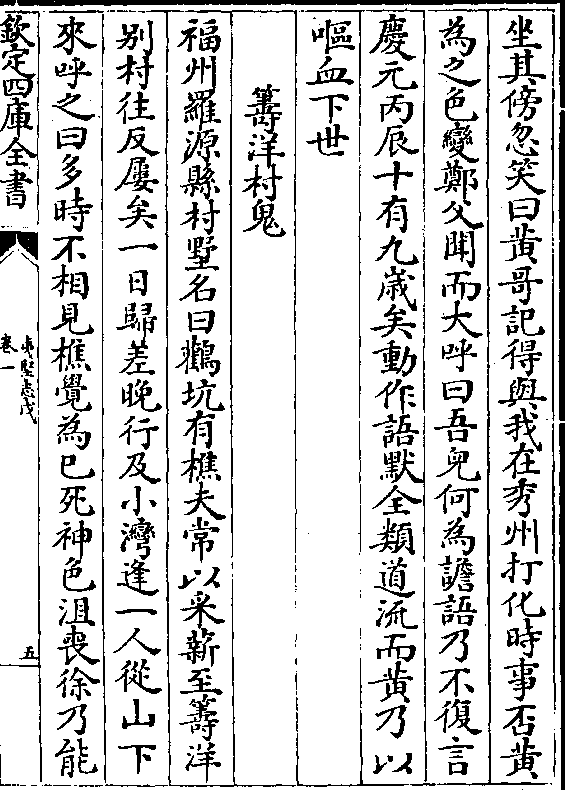 坐其傍忽笑曰黄哥記得與我在秀州打化時事否黄
為之色變鄭父聞而大呼曰吾兒何為譫語乃不復言
慶元丙辰十有九歲矣動作語默全類道流而黄乃以
嘔血下世
籌洋村鬼
福州羅源縣村墅名曰鸛坑有樵夫常以采薪至籌洋
别村往反屢矣一日歸差晚行及小灣逢一人從山下
來呼之曰多時不相見樵覺為已死神色沮喪徐乃能
欽定四庫全書
夷堅志戊
卷一
五